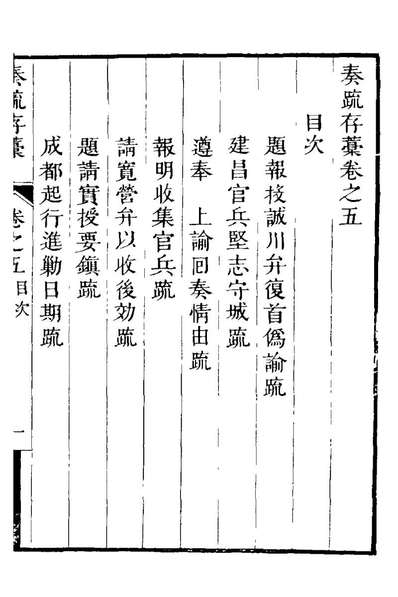 奏疏存藁卷之五
目次
題報投誠川弁復首僞諭疏
建昌官兵堅志守城疏
遵奉　上諭囘奏情由疏
報明收集官兵疏
請寬營弁以收後効疏
題請實授要鎭疏
成都起行進勦日期疏
奏疏存藁
卷之五目次
一